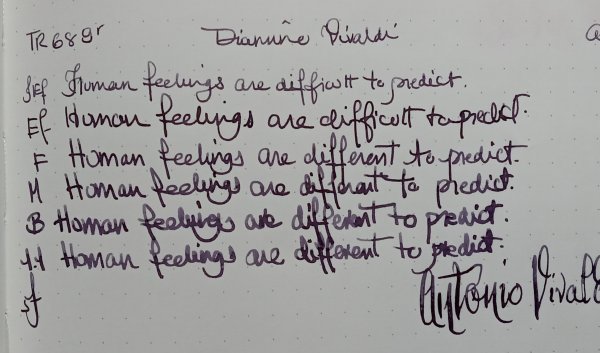 TR 68gr Diamine Vivaldi
SEF Human feelings are difficult to predict.
EF Human feelings are difficult to predict.
F Human feelings are different to predict.
M Human feelings are different to predict.
B Human feelings are different to predict.
1.1 Human feelings are different to predict.
sf Antonio Vivaldi